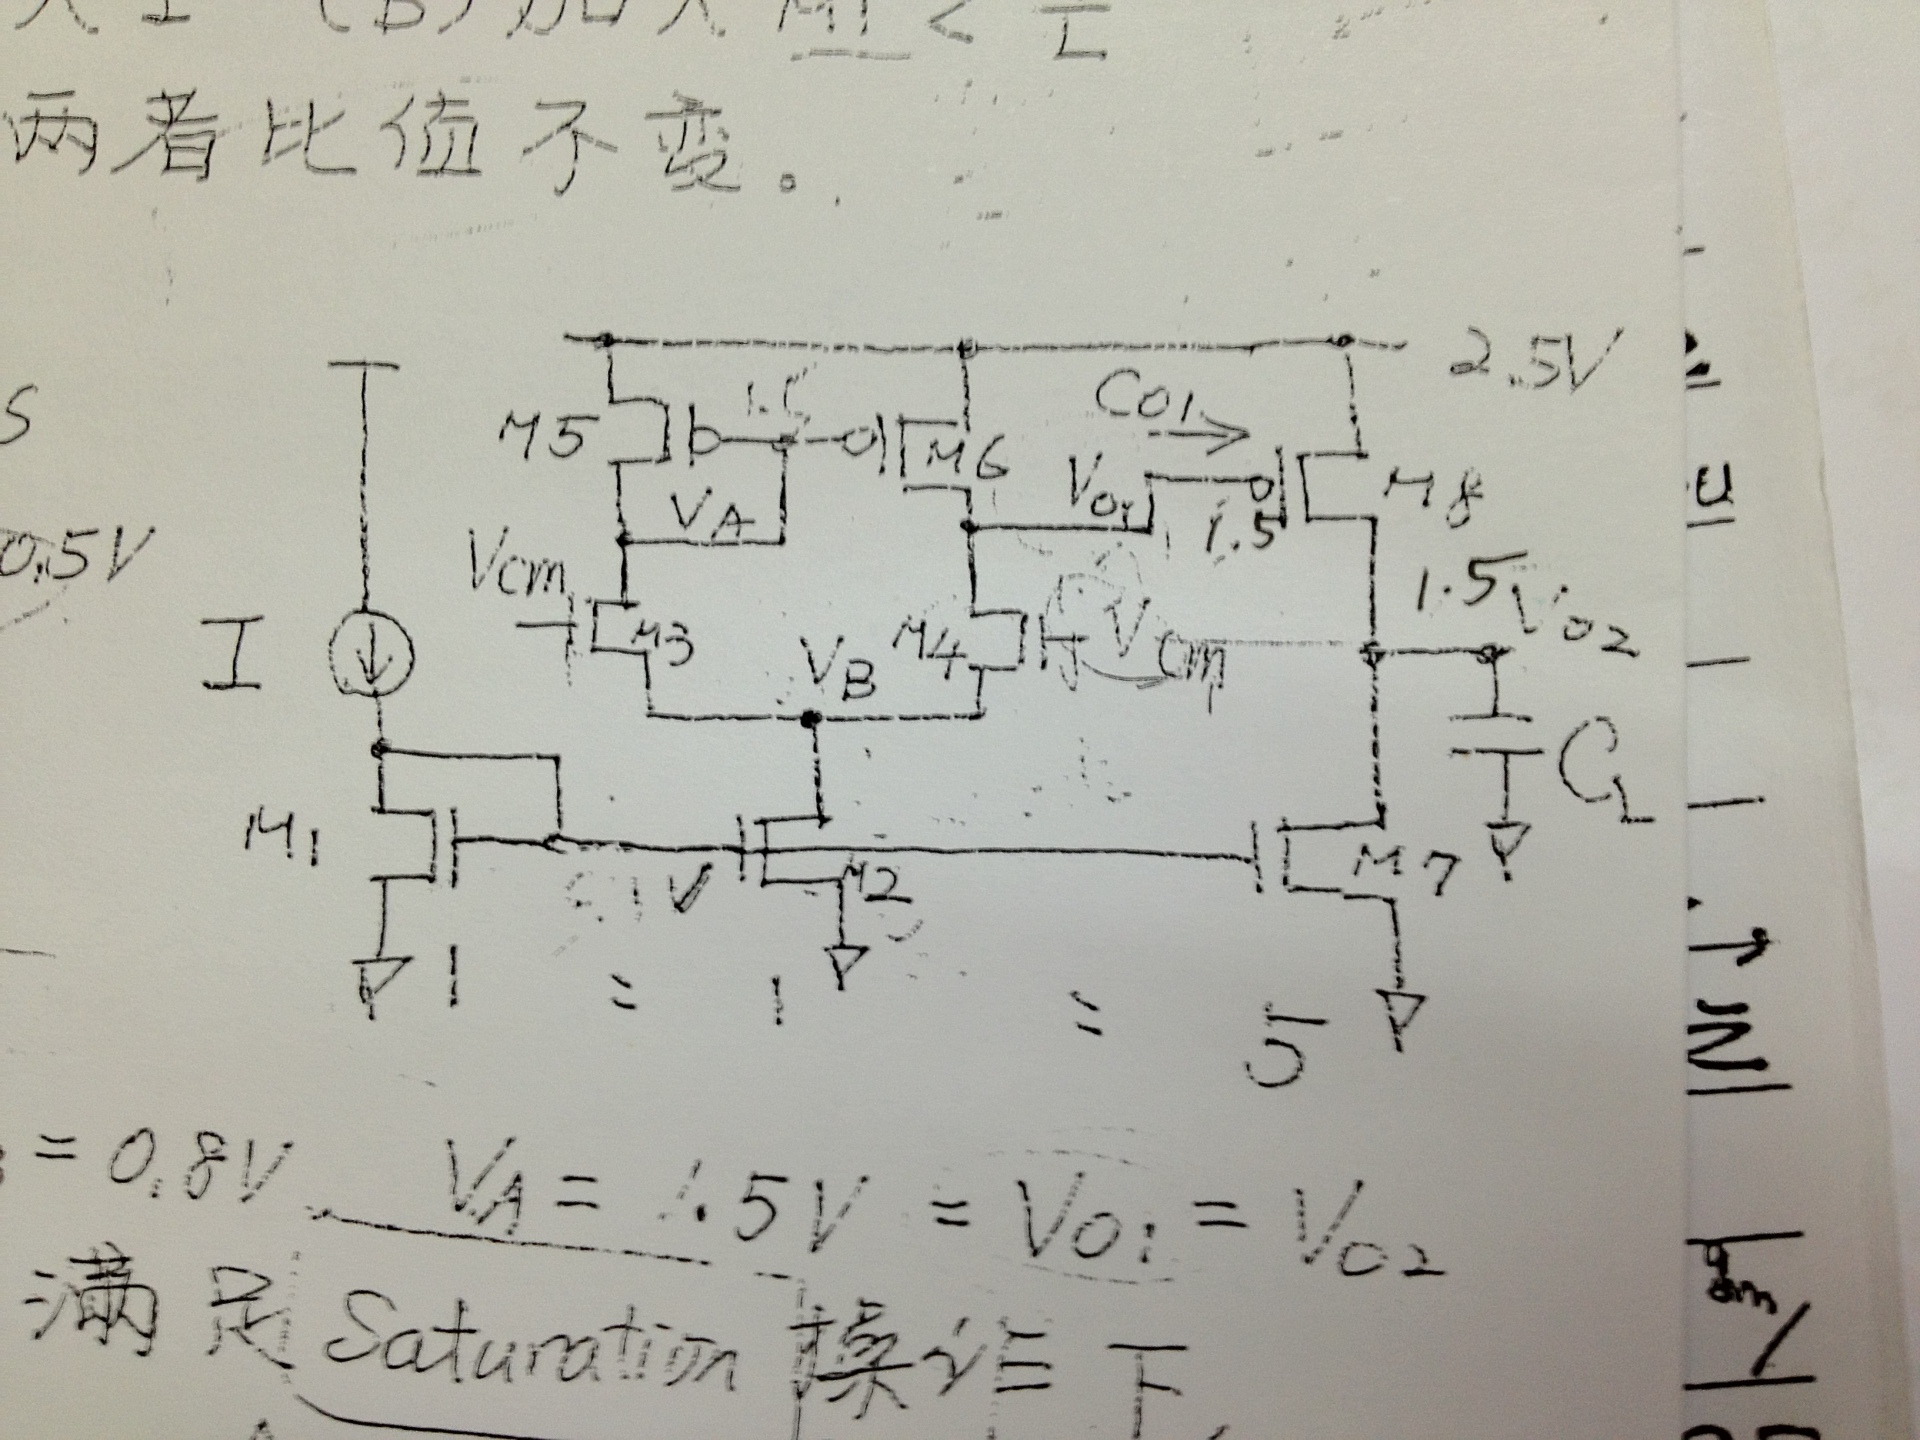 (B) 加大
两者比值不变。
2.5V
S
M5
M6
Co1
M8
VA
Vo1
1.5
0.5V
Vcm
M3
VB
M4
Vcm
1.5
Vo2
I
CL
M1
M2
M7
1 : 1 : 5
= 0.8V VA = 1.5V = Vo1 = Vo2
满足 Saturation 操作下